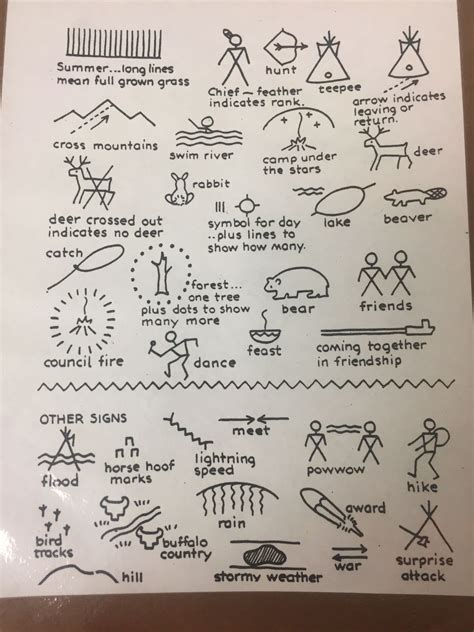 Summer...long lines
mean full grown grass
Chief — feather
indicates rank.
hunt
teepee
arrow indicates
leaving or
return.
cross mountains
swim river
camp under
the stars
deer
deer crossed out
indicates no deer
rabbit
symbol for day
..plus lines to
show how many.
lake
beaver
catch
forest...
one tree
plus dots to show
many more
bear
friends
council fire
dance
feast
coming together
in friendship
OTHER SIGNS
flood
horse hoof
marks
lightning
speed
meet
powwow
hike
bird
tracks
buffalo
country
rain
award
hill
stormy weather
war
surprise
attack